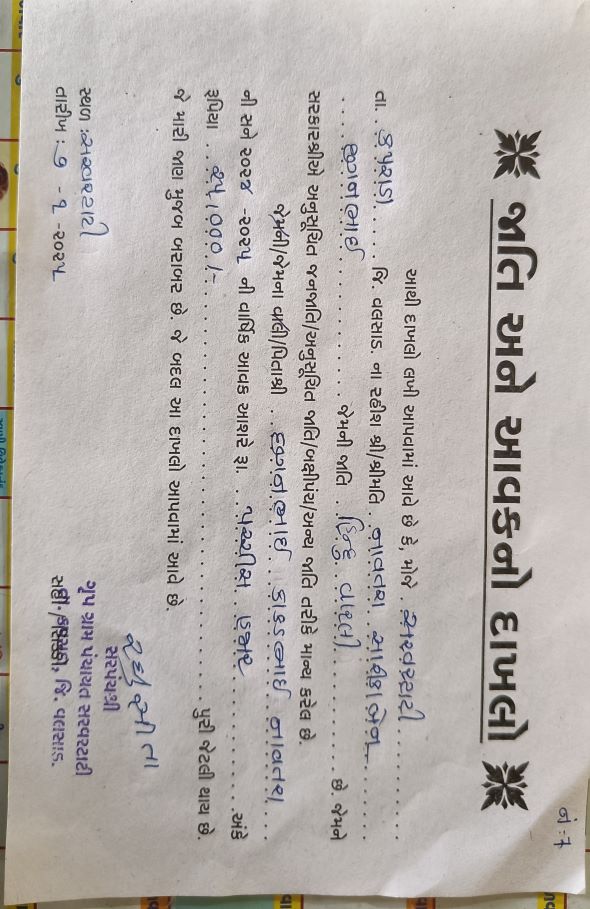 નં : 7
જાતિ અને આવકનો દાખલો
આથી દાખલો લખી આપવામાં આવે છે કે, મોજે . સરવરટાટી
તા . કપરાડા . જિ. વલસાડ. ના રહીશ શ્રી/શ્રીમતિ .
છગનભાઈ . જેમની જાતિ . હિન્દુ વારલી . છે. જેમને
સરકારશ્રીએ અનુસૂચિત જનજાતિ/અનુસૂચિત જાતિ/બક્ષીપંચ/અન્ય જાતિ તરીકે માન્ય કરેલ છે.
જેમની/જેમના વાલી/પિતાશ્રી . છગનભાઈ
ની સને ૨૦૨૪ -૨૦૨૫ ની વાર્ષિક આવક આશરે રૂા. પચ્ચીસ હજાર . અંકે
રૂપિયા . ૨૫,૦૦૦/- . પુરી જેટલી થાય છે.
જે મારી જાણ મુજબ બરાબર છે. જે બદલ આ દાખલો આપવામાં આવે છે.
સ્થળ : સરવરટાટી
તારીખ : ૭ - ૨ -૨૦૨૫
સરપંચશ્રી
ગૃપ ગ્રામ પંચાયત સરવરટાટી
તા. કપરાડા, જિ. વલસાડ.